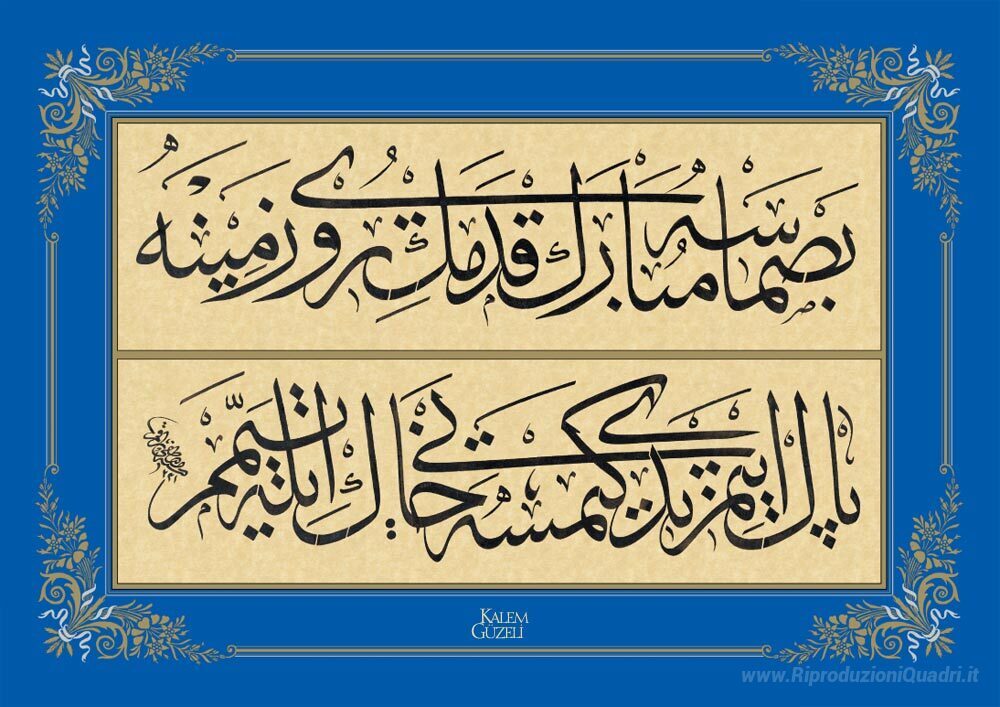 بصماسه مبارك قدمك روی زمینه
پاك ایتمزیدی كیمسه یی خاك ایله تیمّم
KALEM
GÜZELİ
www.RiproduzioniQuadri.it